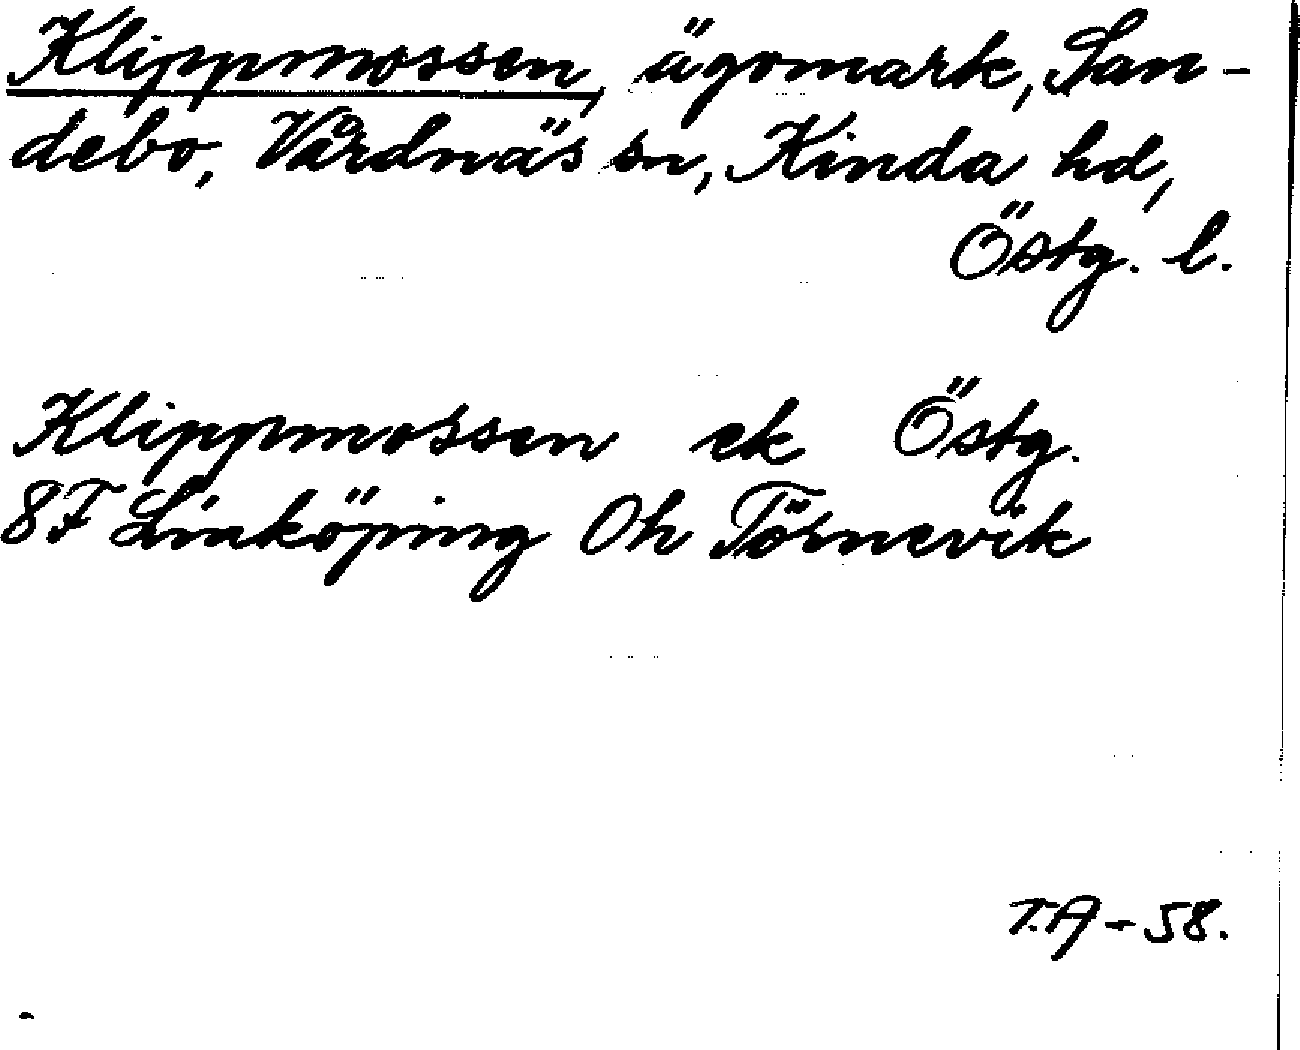 Klippmossen, ägomark, San-
debo, Vårdnäs sn, Kinda hd,
Östg. l.
Klippmossen ek Östg.
8F Linköping Öh Törnevik
T.A - 58.